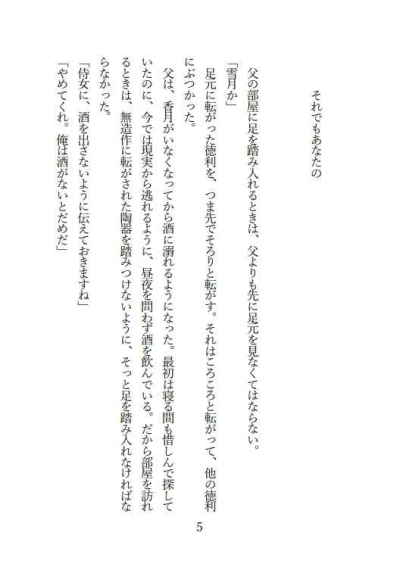 それでもあなたの
父の部屋に足を踏み入れるときは、父よりも先に足元を見なくてはならない。
「雪月か」
足元に転がった徳利を、つま先でそろりと転がす。それはころころと転がって、他の徳利
にぶつかった。
父は、香月がいなくなってから酒に溺れるようになった。最初は寝る間も惜しんで探して
いたのに、今では現実から逃れるように、昼夜を問わず酒を飲んでいる。だから部屋を訪れ
るときは、無造作に転がされた陶器を踏みつけないように、そっと足を踏み入れなければな
らなかった。
「侍女に、酒を出さないように伝えておきますね」
「やめてくれ。俺は酒がないとだめだ」
5